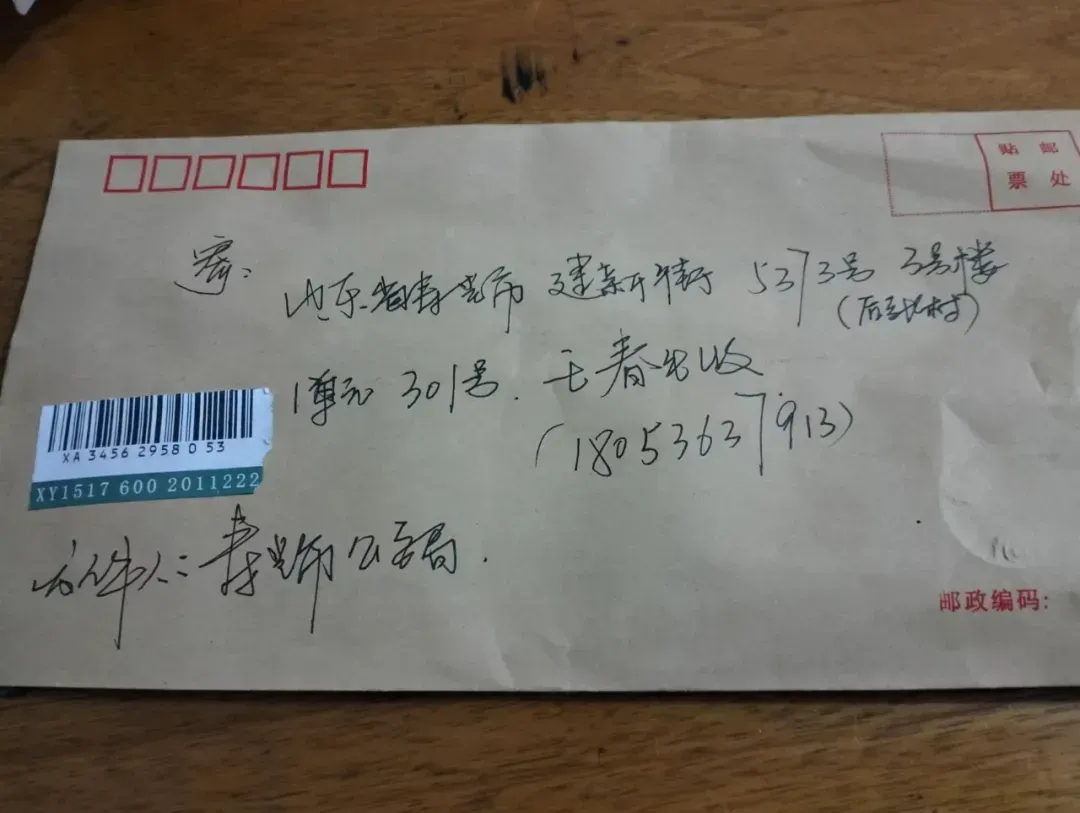 贴 邮
票 处
寄:
山东省寿光市 建新街 5373号 3号楼
(后三里村)
1单元 301号. 王春生收
(18053637913)
XA 3456 2958 0 53
XY1517 600 2011222
寄件人: 寿光市公安局.
邮政编码: